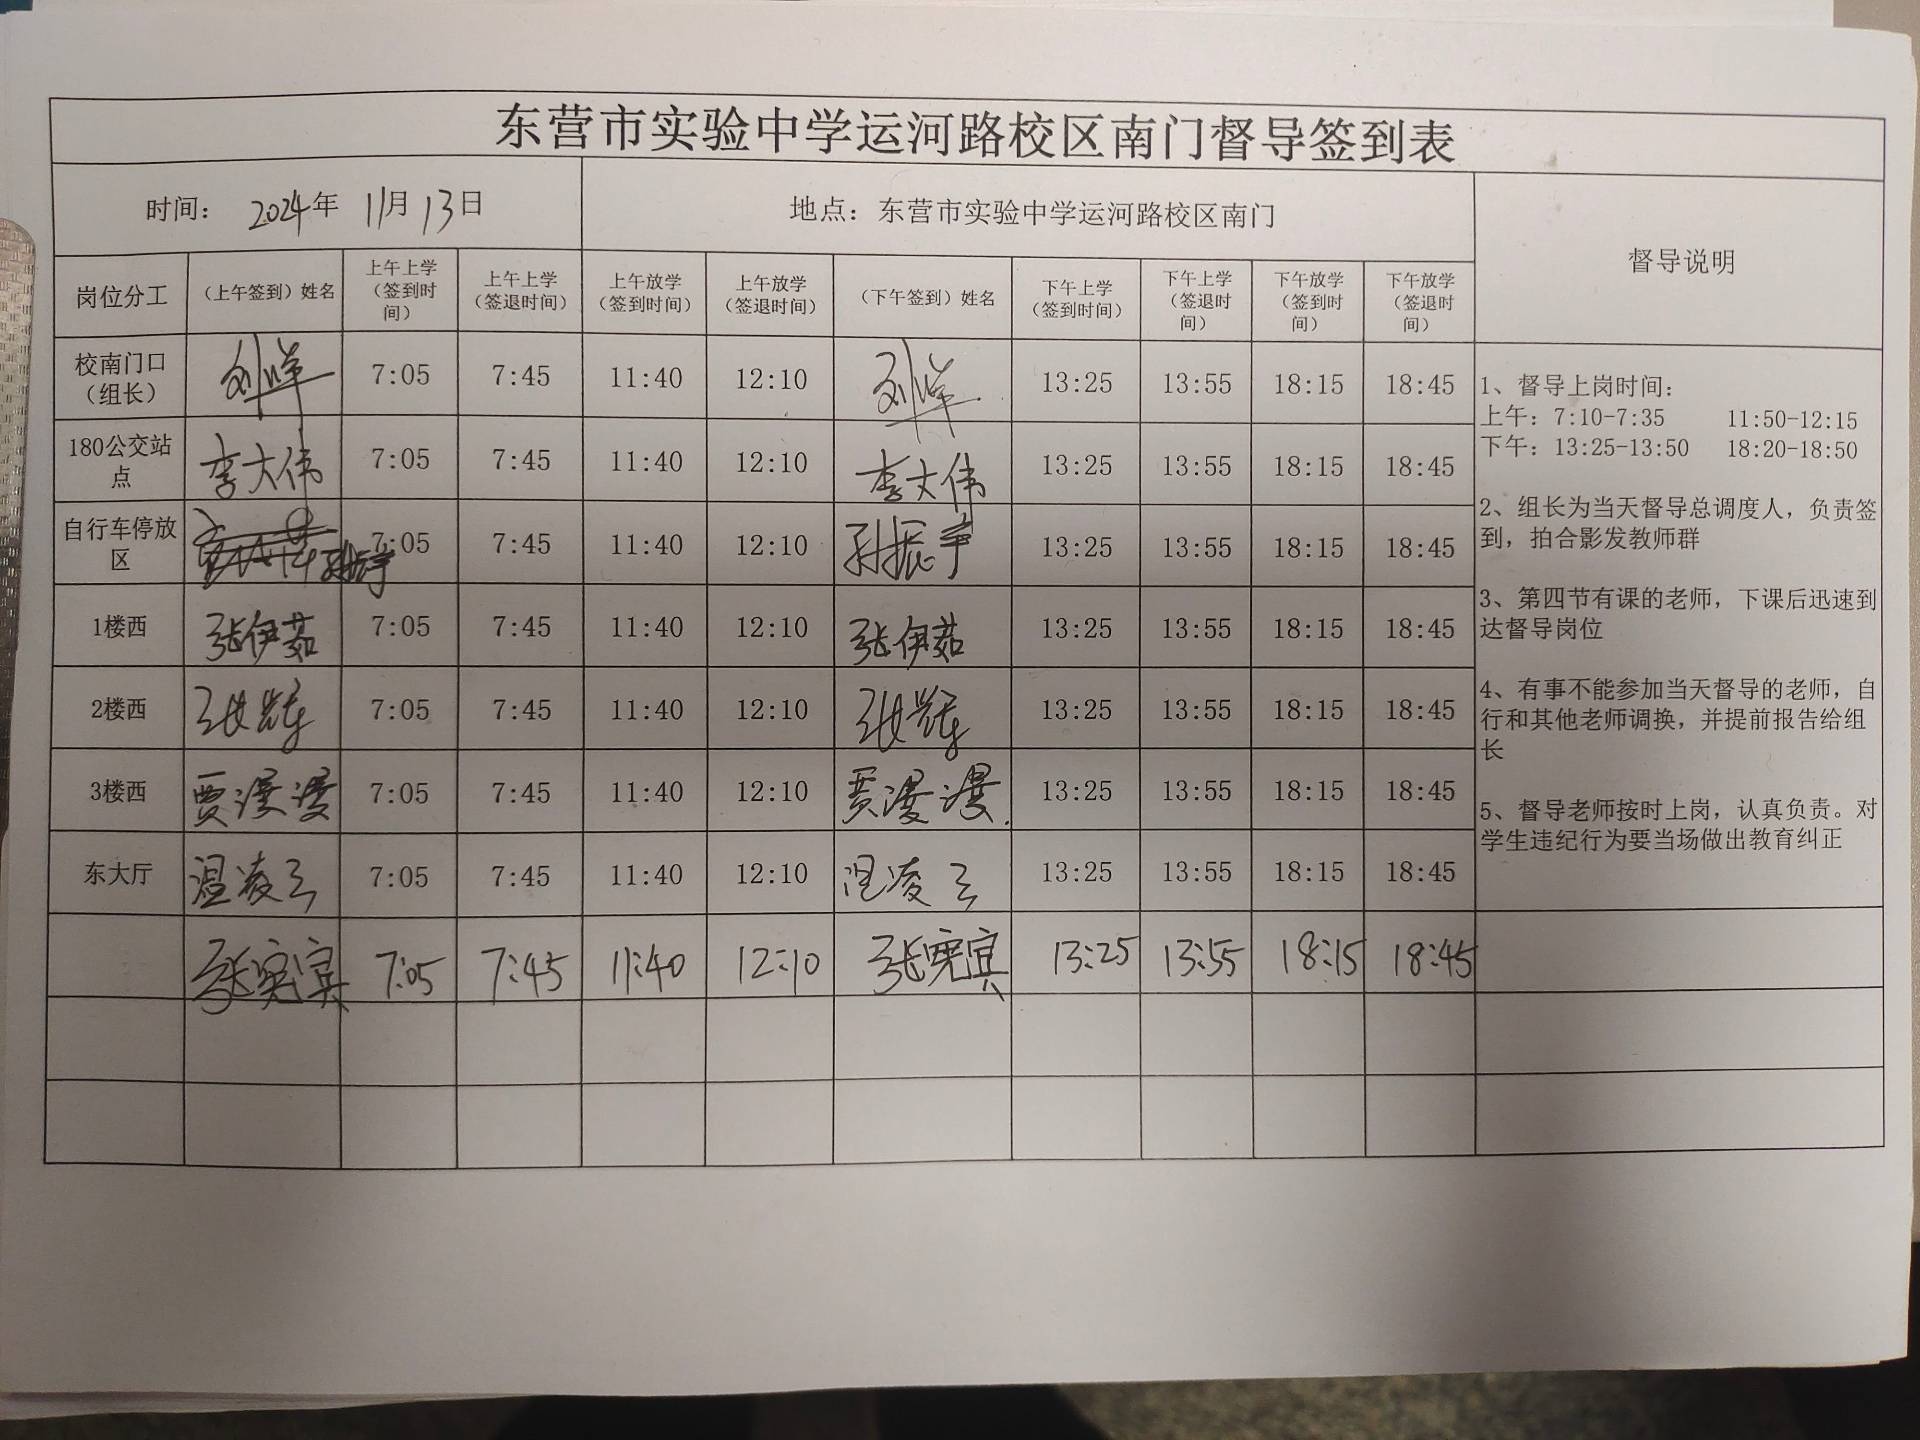 东营市实验中学运河路校区南门督导签到表
时间： 2024年 11月 13日 地点：东营市实验中学运河路校区南门 督导说明
岗位分工 （上午签到）姓名 上午上学（签到时间） 上午上学（签退时间） 上午放学（签到时间） 上午放学（签退时间） （下午签到）姓名 下午上学（签到时间） 下午上学（签退时间） 下午放学（签到时间） 下午放学（签退时间）
校南门口（组长） 刘洋 7:05 7:45 11:40 12:10 刘洋 13:25 13:55 18:15 18:45
180公交站点 李大伟 7:05 7:45 11:40 12:10 李大伟 13:25 13:55 18:15 18:45
自行车停放区 孙振宇 7:05 7:45 11:40 12:10 孙振宇 13:25 13:55 18:15 18:45
1楼西 张伊茹 7:05 7:45 11:40 12:10 张伊茹 13:25 13:55 18:15 18:45
2楼西 张辉 7:05 7:45 11:40 12:10 张辉 13:25 13:55 18:15 18:45
3楼西 贾漫漫 7:05 7:45 11:40 12:10 贾漫漫 13:25 13:55 18:15 18:45
东大厅 温凌云 7:05 7:45 11:40 12:10 温凌云 13:25 13:55 18:15 18:45
张宪宾 7:05 7:45 11:40 12:10 张宪宾 13:25 13:55 18:15 18:45
1、督导上岗时间：
上午：7:10-7:35 11:50-12:15
下午：13:25-13:50 18:20-18:50
2、组长为当天督导总调度人，负责签
到，拍合影发教师群
3、第四节有课的老师，下课后迅速到
达督导岗位
4、有事不能参加当天督导的老师，自
行和其他老师调换，并提前报告给组
长
5、督导老师按时上岗，认真负责。对
学生违纪行为要当场做出教育纠正